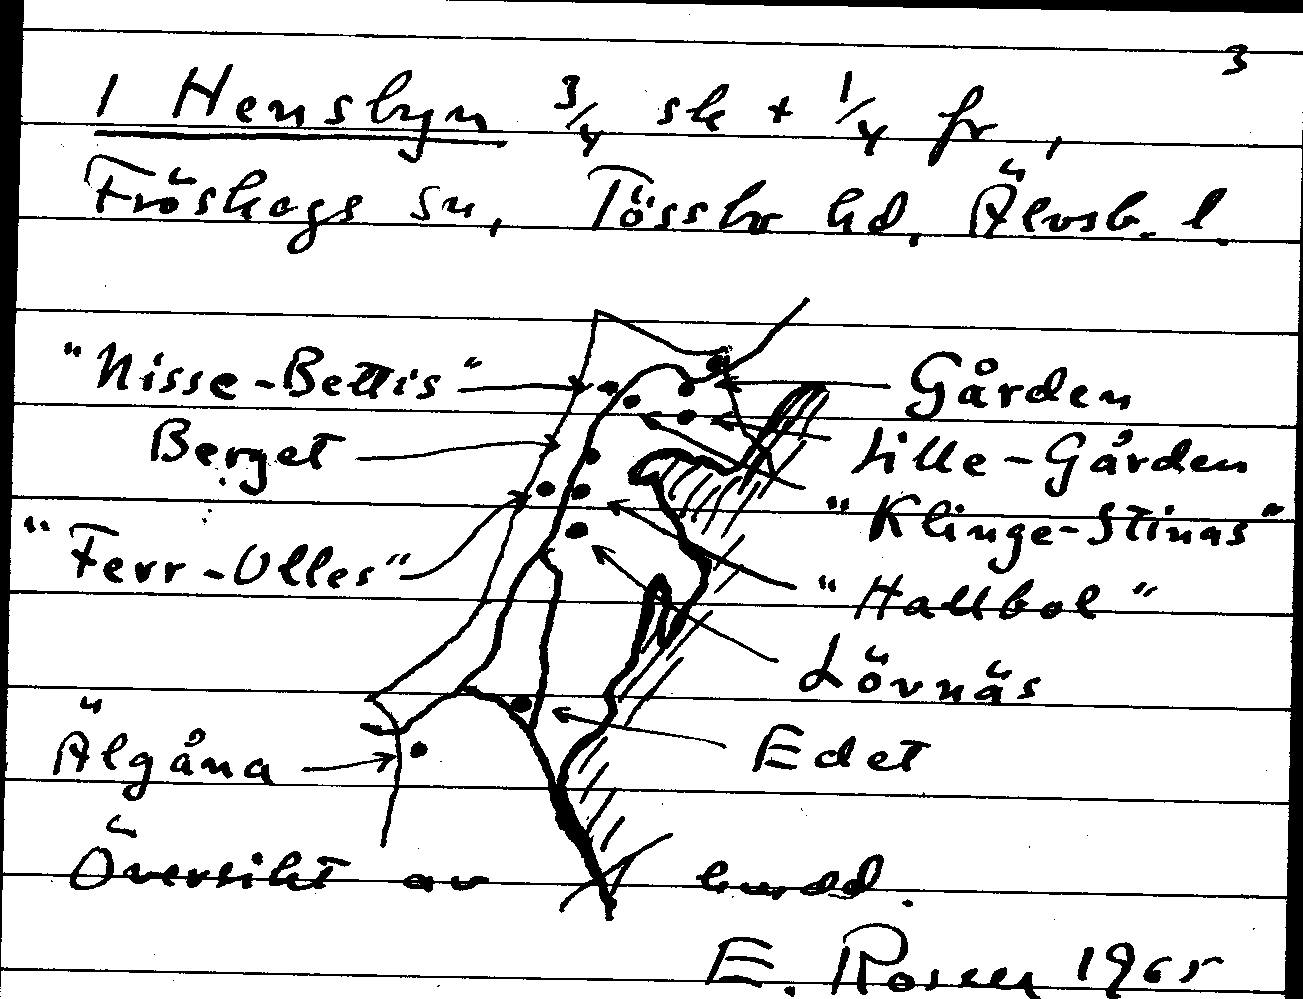 3
1 Hensbyn 3/4 sk + 1/4 fr,
Fröskogs sn, Tössbo hd. Älvsb. l.
"Nisse-Bettis"
Gården
Berget
Lille-Gården
"Klinge-Stinas"
"Ferr-Olles"
"Hallbol"
Lövnäs
Älgåna
Edet
Översikt av
E. Rosell 1965